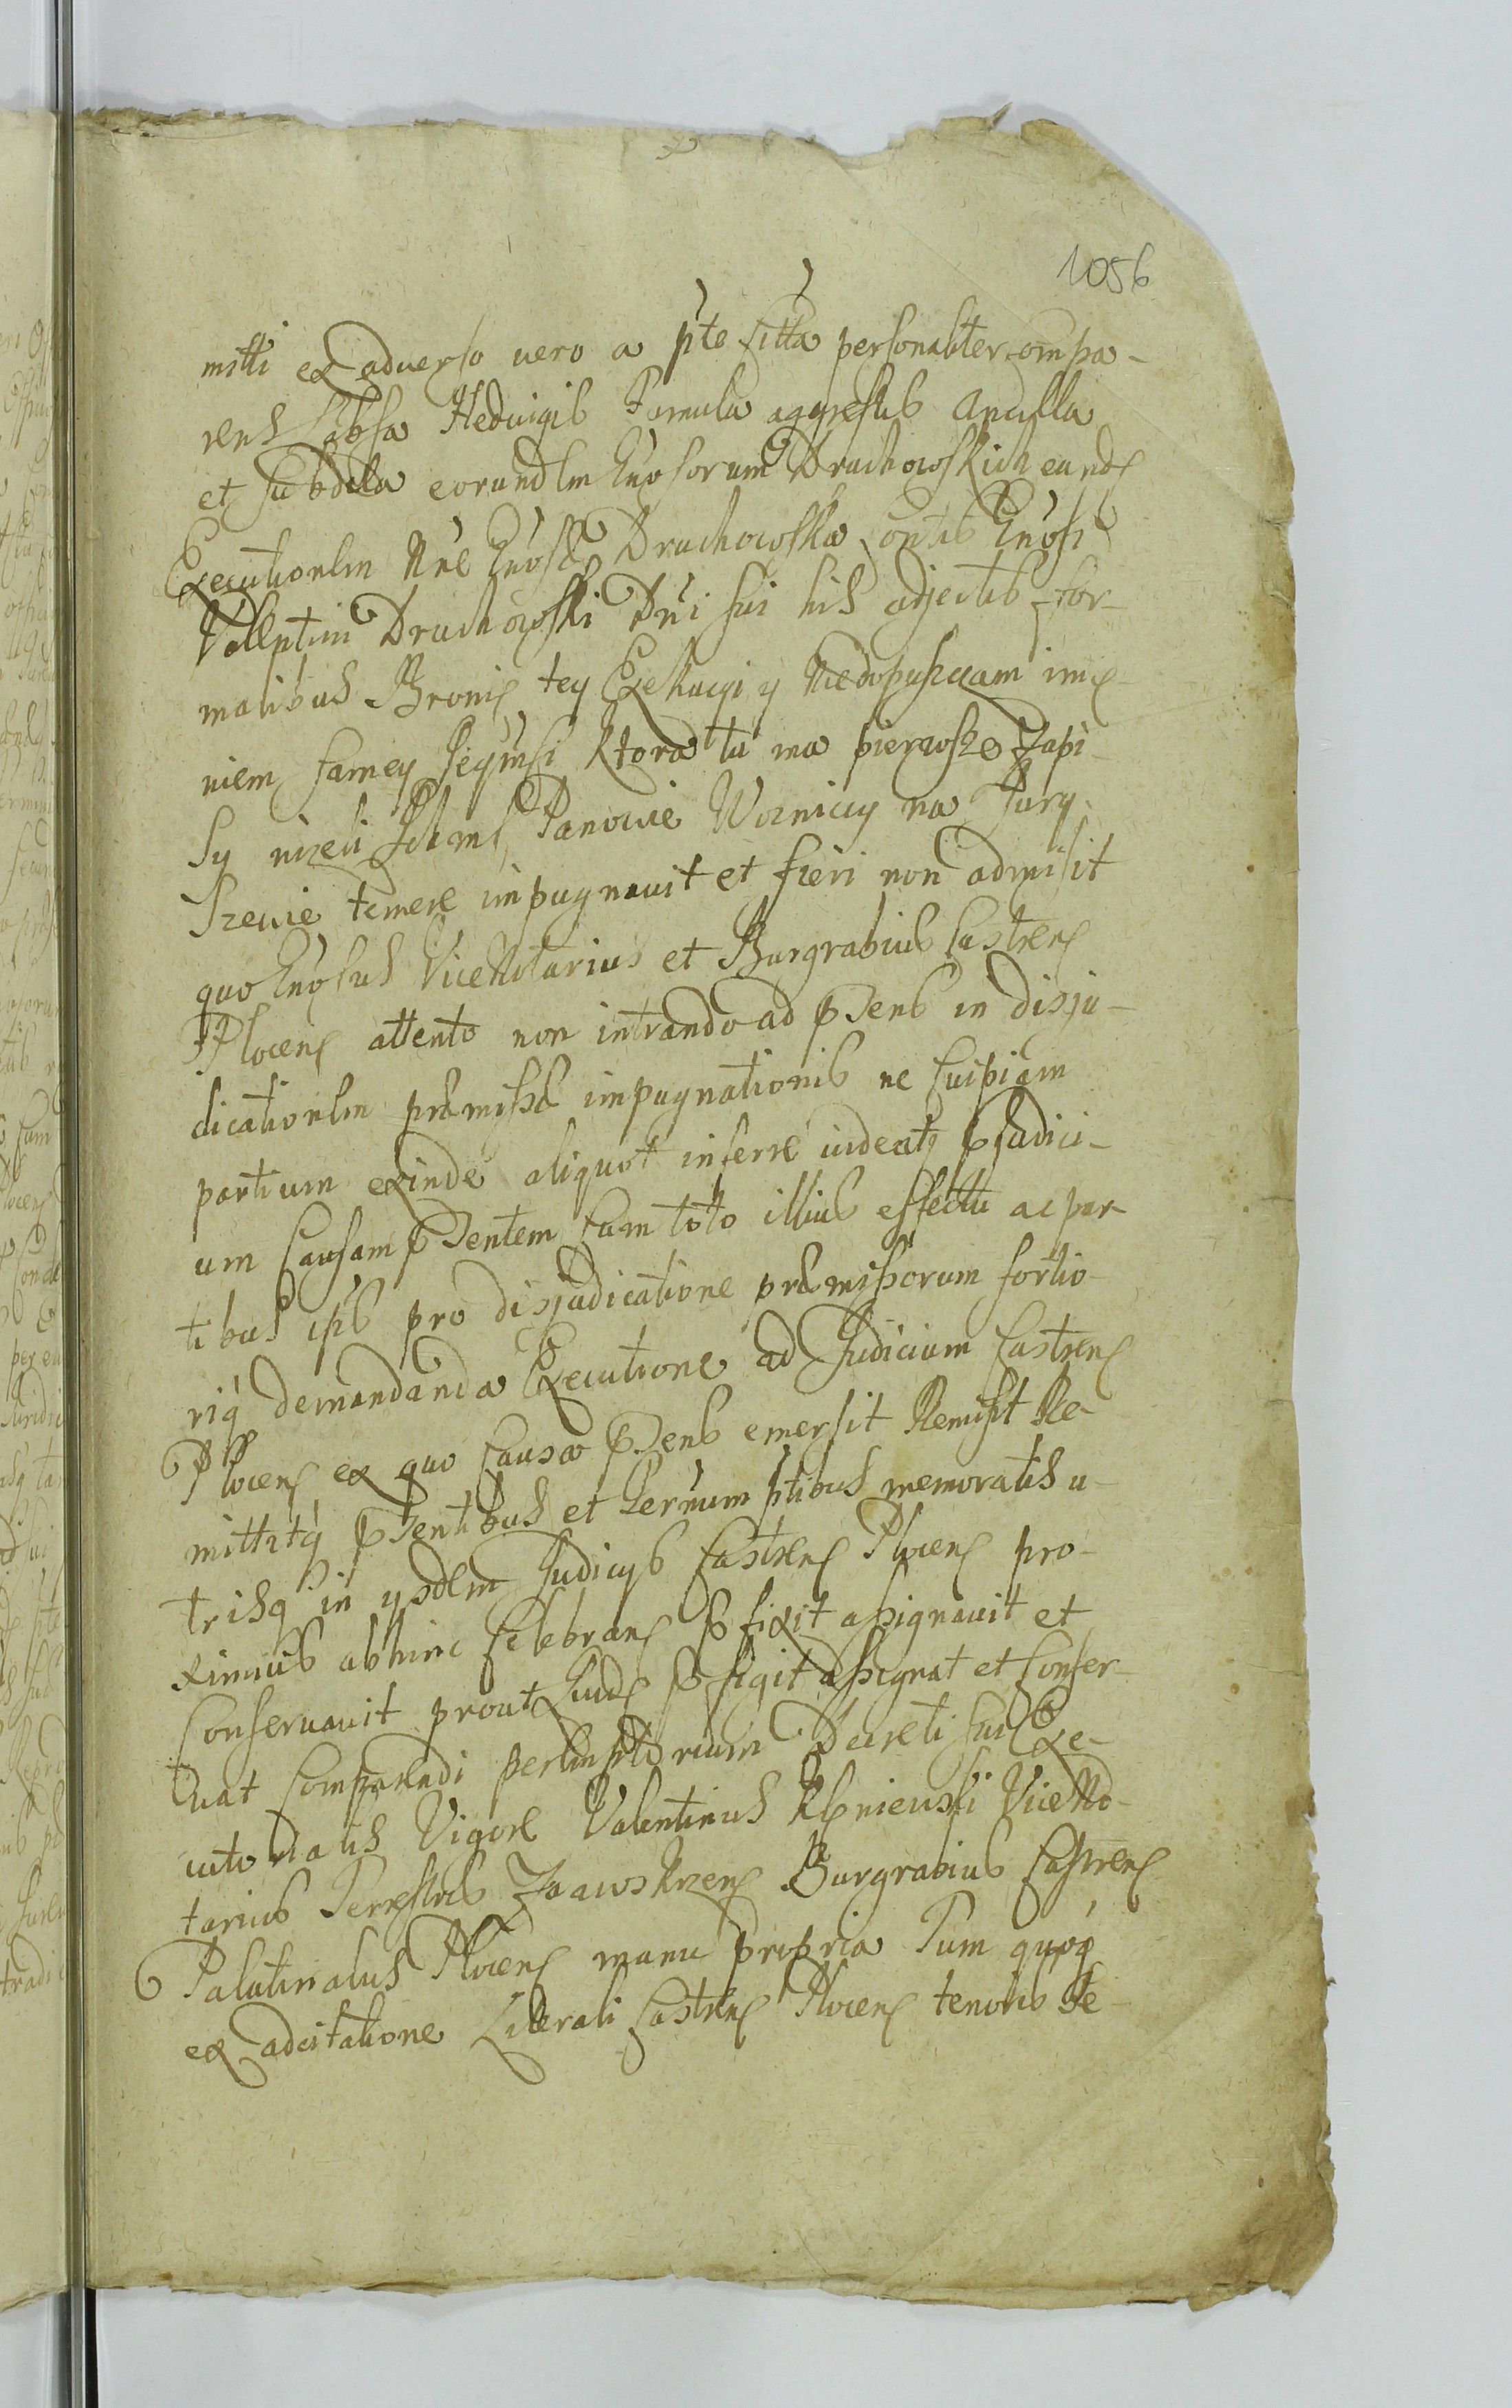 1056
mitti ex adverso vero a pte citta personaliter compa-
rens Labsa Hedvigis Famula agrestis Ancilla
et subdita eorundem Gnosorum Druchowskich eandē
Executionem Nne Gnosæ Druchowska contis Gnosi
Vallentini Druchowski Dni sui his adjectis for-
malibus Bronię tey Exekucyi y Niedopuszczam imie-
niem samey Jeymsci ktora tu ma pierwsze Zapi-
sy nizeli Ichmsć Panowie Wozniccy na Jurg.
Szewie temere impugnavit et fieri non admisit
quo Gnosus ViceNotarius et Burgrabius Castren
Plocen attento non intrando ad pōsens in disju-
dicationem præmissæ impugnationis ne cuipiam
partium exinde aliquot inferre videatq pōjudici-
um Causam pōsentem cum toto illius effectu ac par-
tibus ipsis pro disjudicatione præmissorum fortio-
riq demandanda Executione ad Judicium Castren
Plocen ex quo Causa pōsens emersit Remisit Re-
mittitq pōsentibus et Termum ptibus memoratis u-
trisq in ysdem Judicys Castren Plocen pro-
ximius abhinc celebran pōfixit assignavit et
Conservavit prout quidē pōfigit assignat et Conser-
vat Comparendi peremptorium Decreti sui Exe-
cutorialis Vigore Valentinus Rempniewski ViceNo-
tarius Terrestris Zaawskrzen Burgrabius Castren
Palatinatus Plocen manu propria Tum quoq
ex adcitatione Literali Castren Plocen tenoris se-